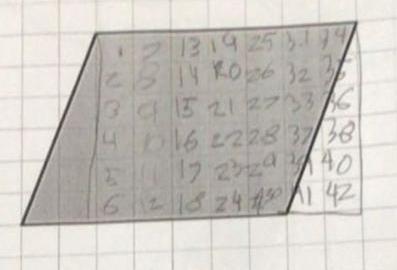 1 7 13 19 25 31 34
2 8 14 20 26 32 35
3 9 15 21 27 33 36
4 10 16 22 28 37 38
5 11 17 23 29 39 40
6 12 18 24 30 41 42